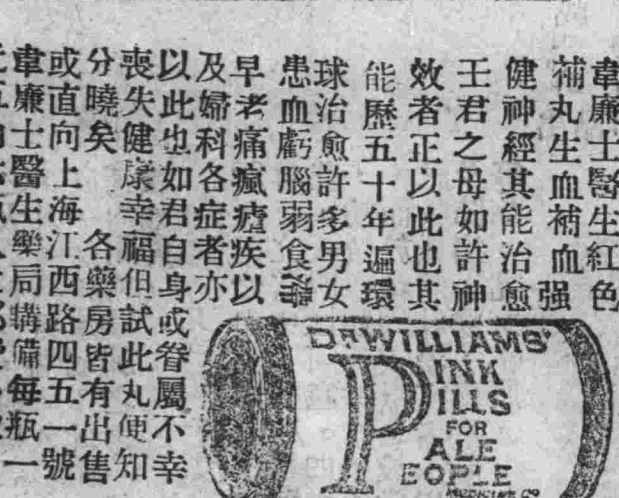 韋廉士醫生紅色
補丸生血補血强
健神經其能治愈
王君之母如許神
效者正以此也其
能歷五十年遍環
球治愈許多男女
患血虧腦弱食滯
早老痛瘋瘧疾以
及婦科各症者亦
以此也如君自身或眷屬不幸
喪失健康幸福但試此丸便知
分曉矣 各藥房皆有出售
或直向上海江西路四五一號
韋廉士醫生藥局購備每瓶一
DR WILLIAMS'
PINK
PILLS
FOR
PALE
PEOPLE